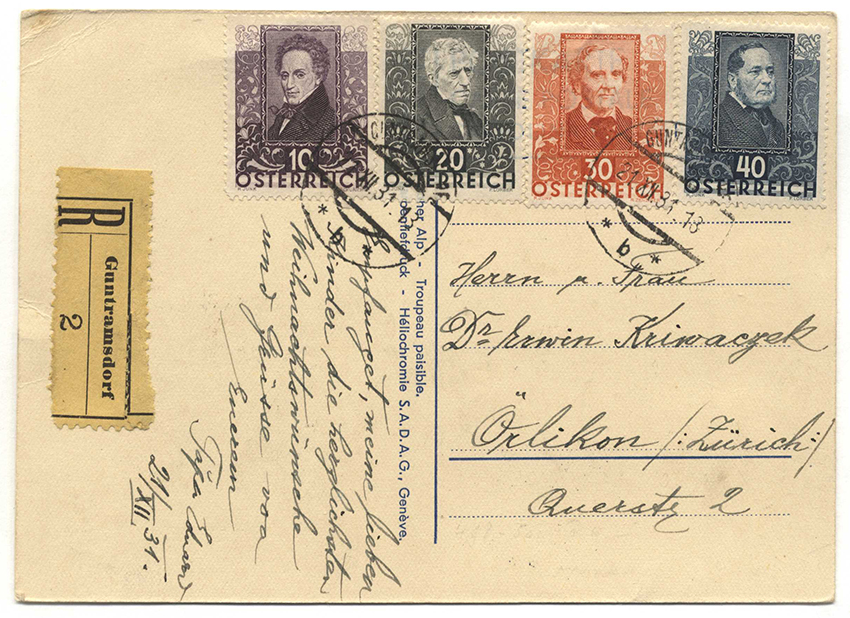 10
ÖSTERREICH
20
ÖSTERREICH
30
ÖSTERREICH
40
ÖSTERREICH
21.XII.31.13
* b *
R
Guntramsdorf
2
her Alp - Troupeau paisible.
- Héliochromie S.A.D.A.G., Genève.
Empfanget, meine lieben
Kinder die herzlichsten
Weihnachtswünsche
und Grüsse von
Euerem
Papa Eduard
21/XII 31.
Herrn u. Frau
Dr Erwin Kriwaczek
Örlikon /:Zürich:/
Querstr 2